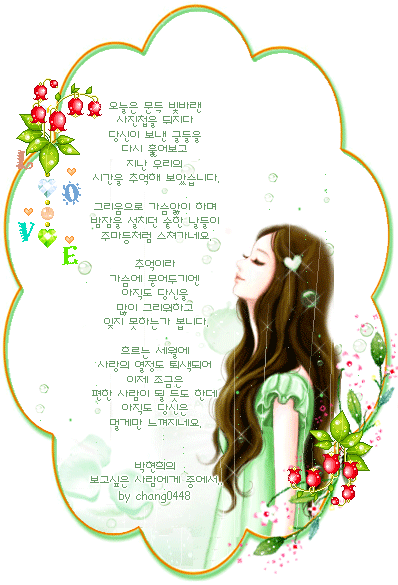 오늘은 문득 빛바랜
사진첩을 뒤지다
당신이 보낸 글들을
다시 훑어보고
지난 우리의
시간을 추억해 보았습니다.
그리움으로 가슴앓이 하며
밤잠을 설치던 숱한 날들이
주마등처럼 스쳐가네요.
추억이라
가슴에 묻어두기엔
아직도 당신을
많이 그리워하고
잊지 못하는가 봅니다.
흐르는 세월에
사랑의 열정도 퇴색되어
이제 조금은
편한 사람이 될 듯도 한데
아직도 당신은
멀게만 느껴지네요.
박현희의
보고싶은 사람에게 중에서..
by chang0448
L
O
V
E